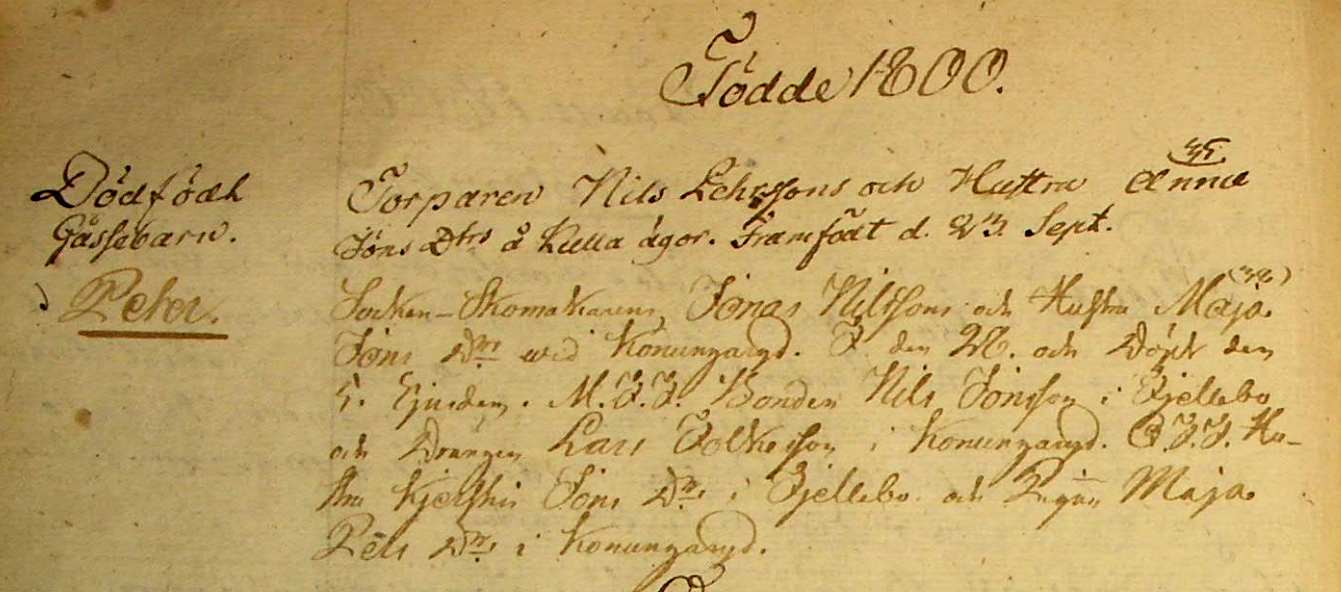 Födde 1800.
Dödfödt
Gåssebarn.
35.
Torparen Nils Lehrssons och Hustru Anna
Jöns Dtrs å Kulla ägor. Framfödt d. 23. Sept.
Peter.
(38)
Socken-Skomakarens, Jonas Nilssons och Hustru Maja
Jöns Dtrs wid Konungaryd. F den 28. och Döpt den
5. Ejusdem. M.F.F. Bonden Nils Jönsson i Fjellebo
och Drängen Lars Folkesson i Konungaryd. Q.F.F. Hu-
stru Kjerstin Jöns Dtr. i Fjellebo och Pigan Maja
Pehrs Dtr. i Konungaryd.